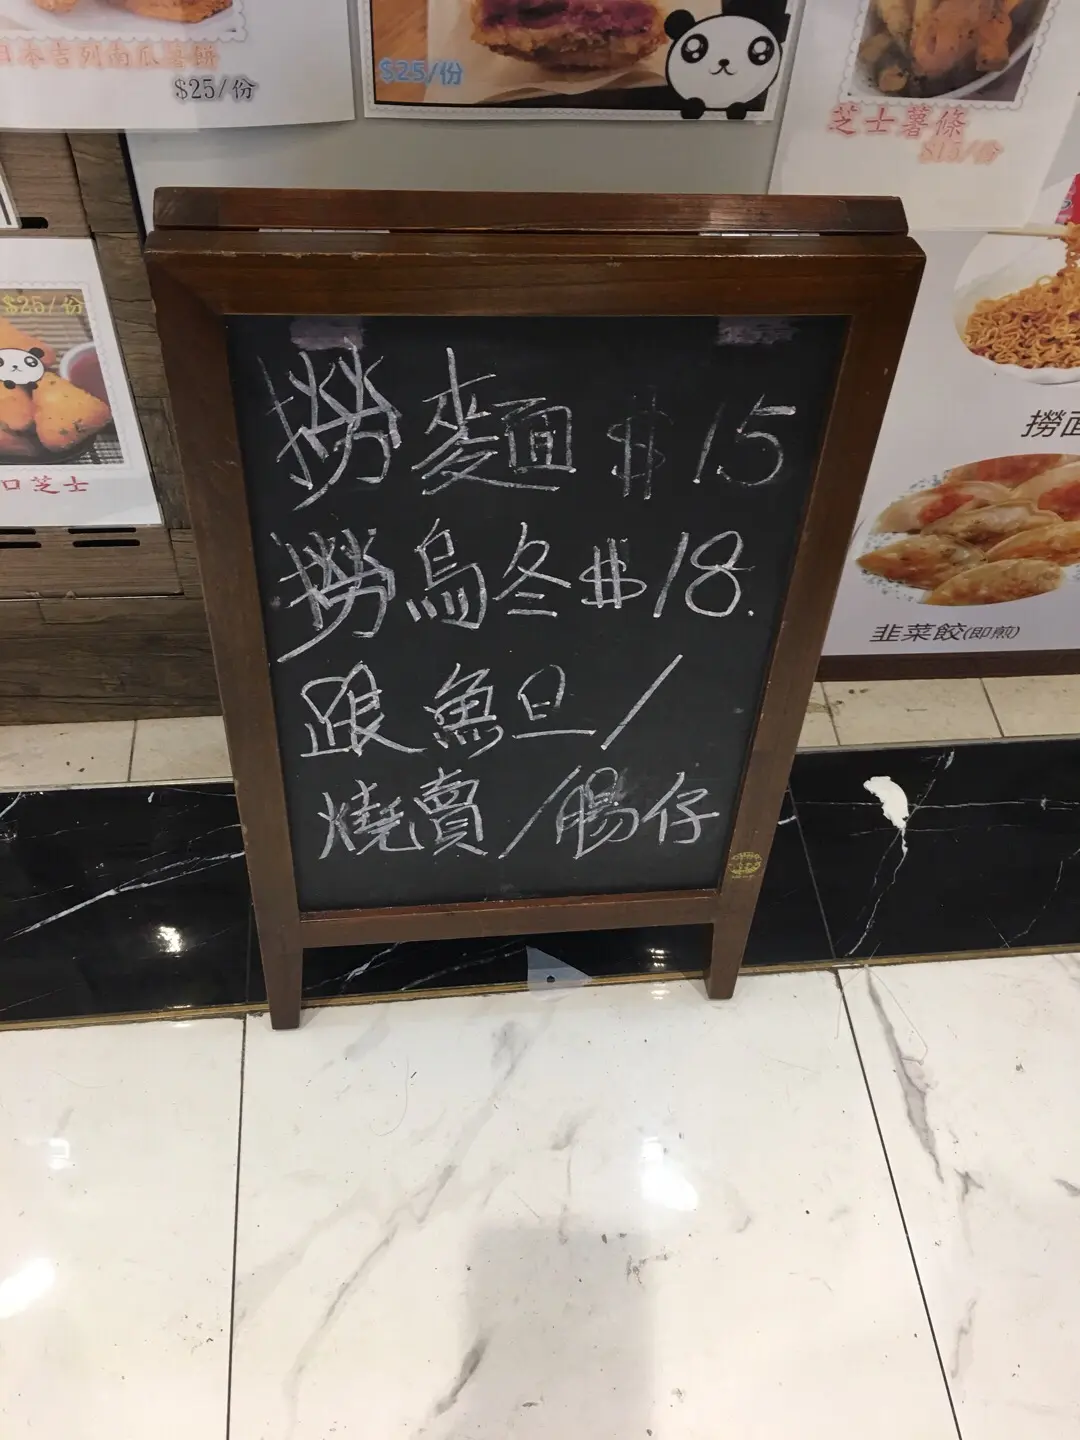 日本吉列南瓜薯餅
$25/份
$25/份
芝士薯條
$15/份
$25/份
口芝士
撈麵 $15
撈烏冬 $18.
跟魚旦/
燒賣/腸仔
撈面
韭菜餃(即煎)